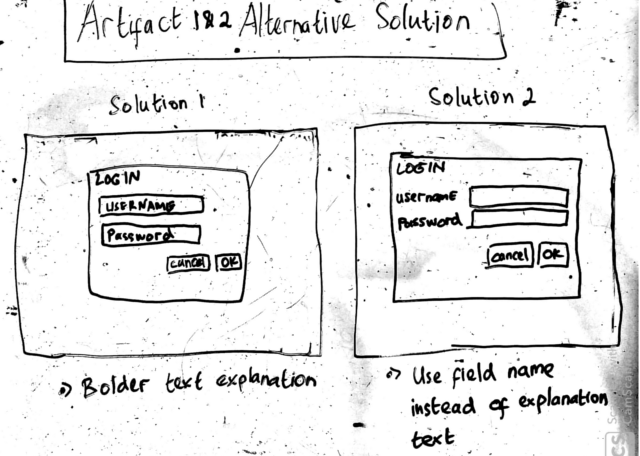 Artifact 1&2 Alternative Solution
Solution 1
LOGIN
USERNAME
Password
cancel OK
Bolder text explanation
Solution 2
LOGIN
username
Password
cancel OK
Use field name
instead of explanation
text
CS
CamScanner